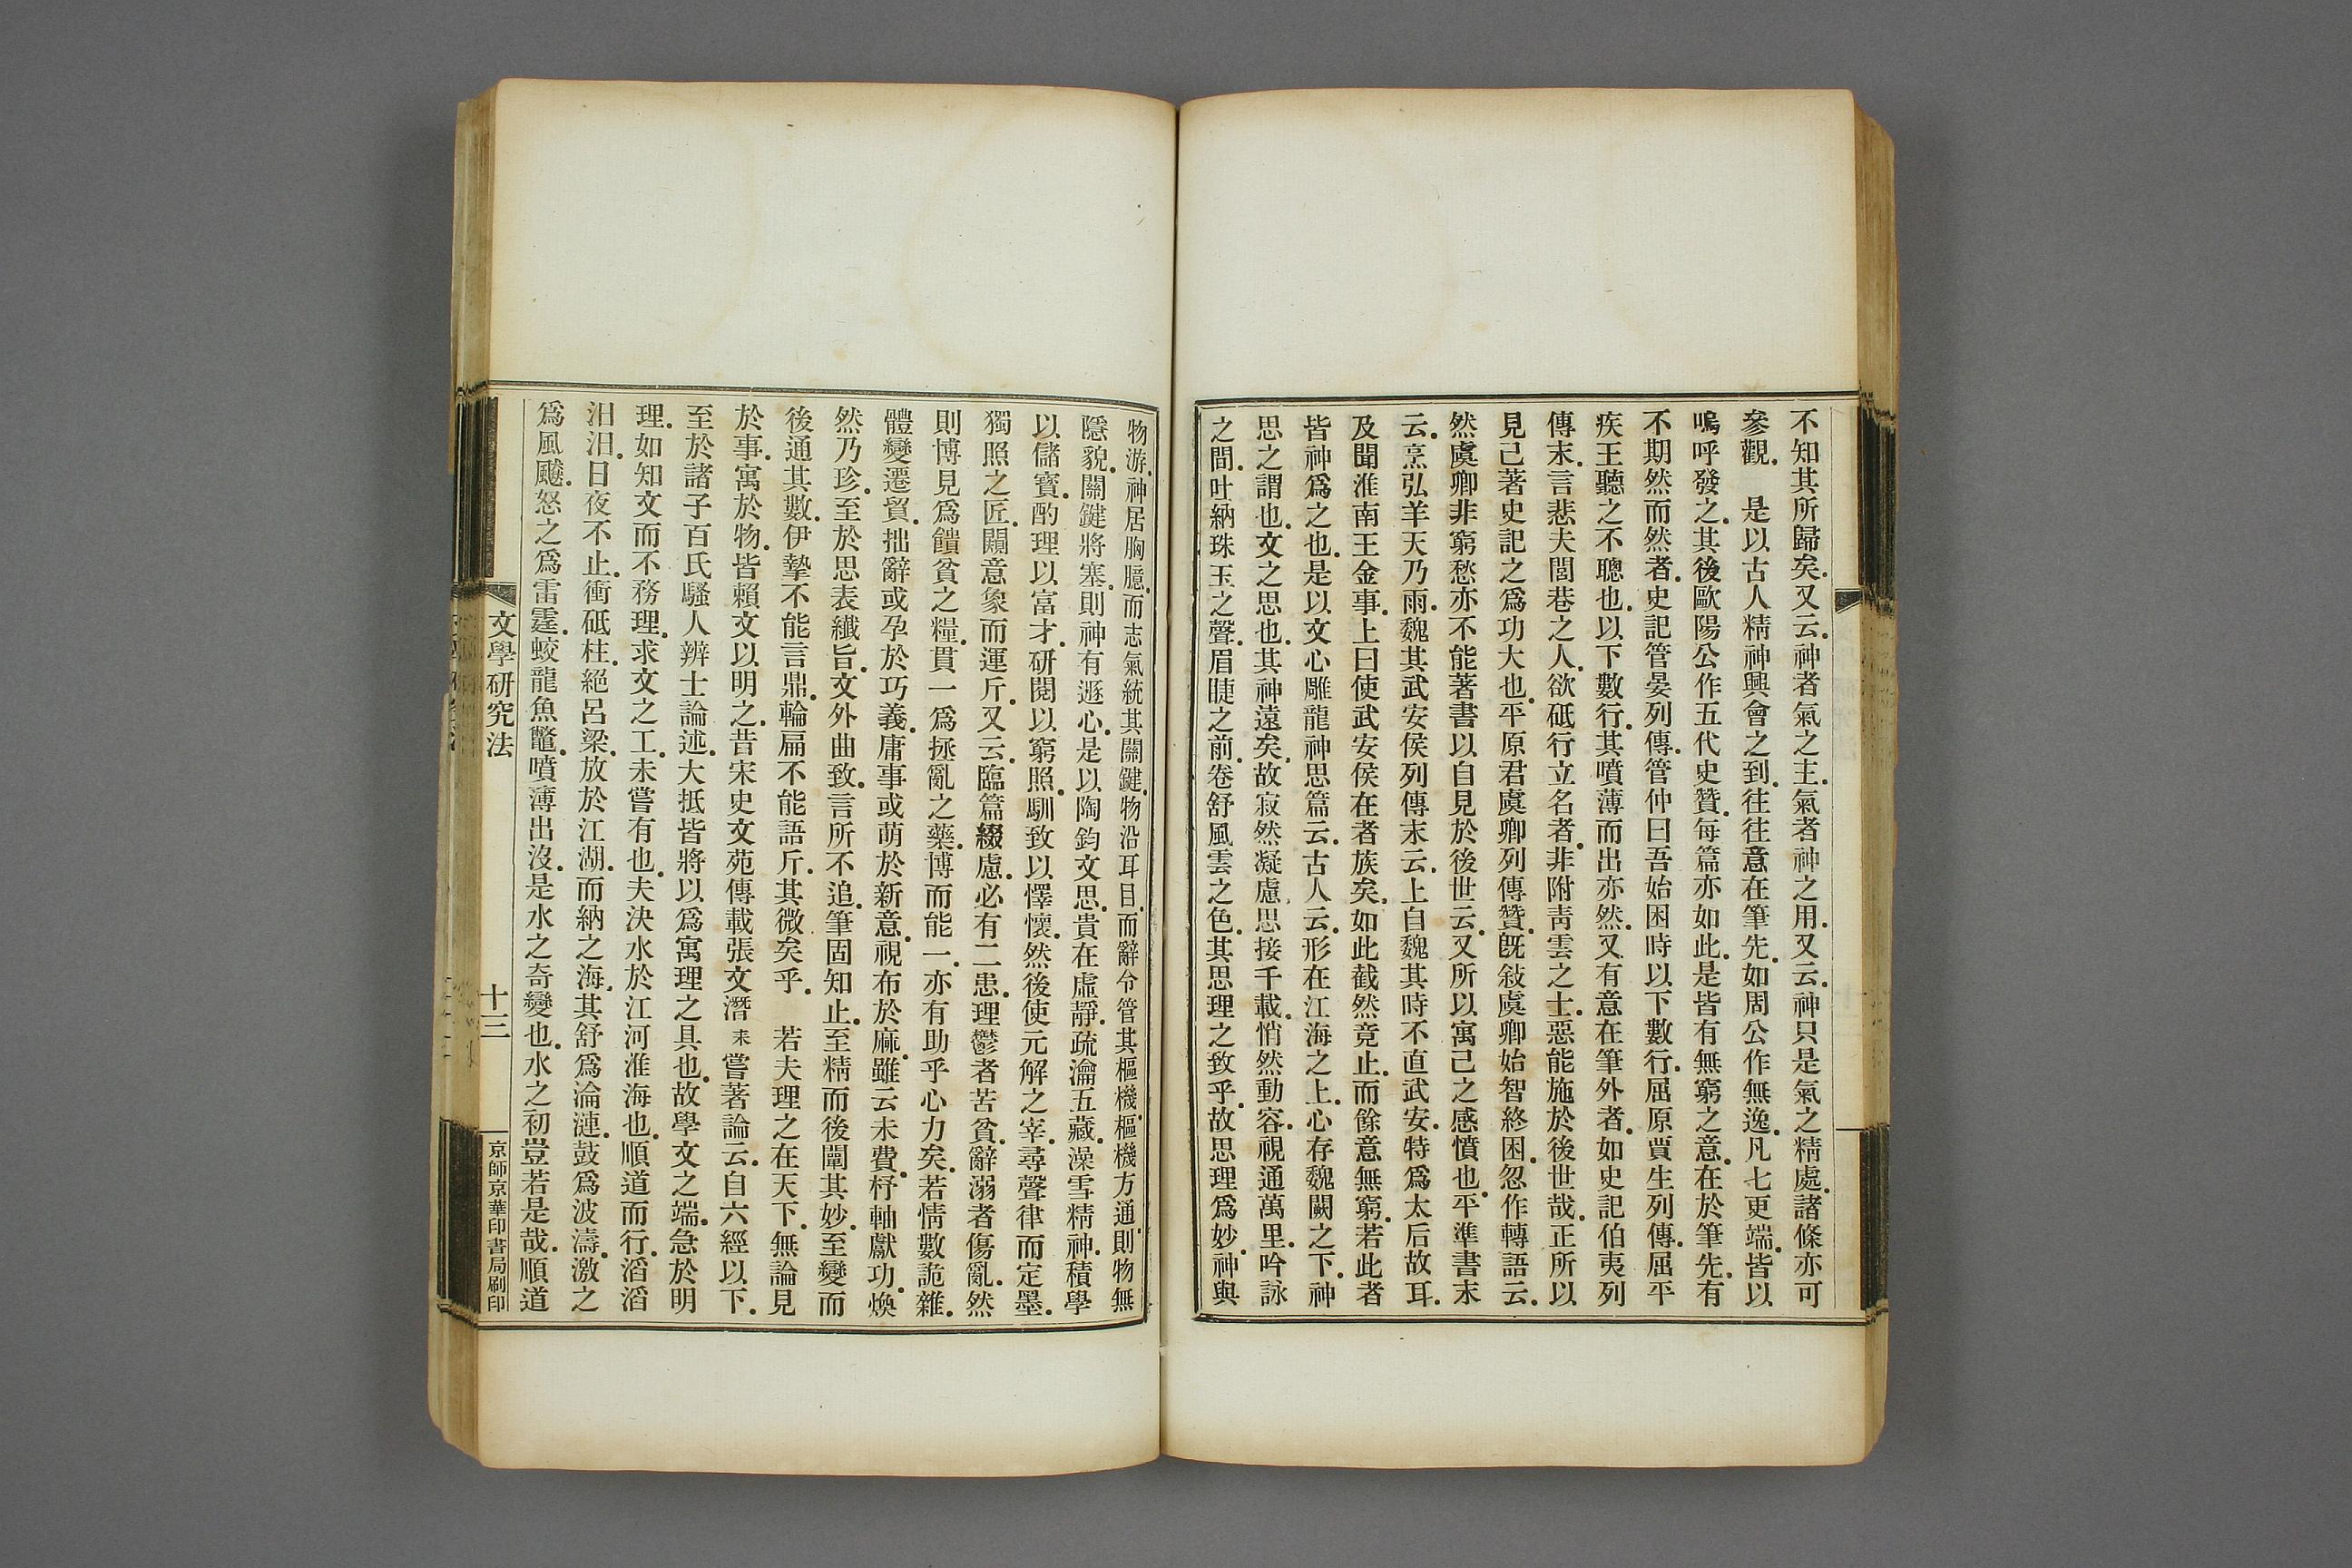 不知其所歸矣.又云.神者氣之主.氣者神之用.又云.神只是氣之精處.諸條亦可
參觀.　是以古人精神興會之到.往往意在筆先.如周公作無逸.凡七更端.皆以
嗚呼發之.其後歐陽公作五代史贊.每篇亦如此.是皆有無窮之意.在於筆先.有
不期然而然者.史記管晏列傳.管仲曰吾始困時以下數行.屈原賈生列傳.屈平
疾王聽之不聰也.以下數行.其噴薄而出亦然.又有意在筆外者.如史記伯夷列
傳末.言悲夫閭巷之人.欲砥行立名者.非附靑雲之士.惡能施於後世哉.正所以
見己著史記之爲功大也.平原君虞卿列傳贊.旣敍虞卿始智終困.忽作轉語云.
然虞卿非窮愁亦不能著書以自見於後世云.又所以寓己之感憤也.平準書末
云.烹弘羊天乃雨.魏其武安侯列傳末云.上自魏其時不直武安.特爲太后故耳.
及聞淮南王金事.上曰使武安侯在者族矣.如此截然竟止.而餘意無窮.若此者
皆神爲之也.是以文心雕龍神思篇云.古人云.形在江海之上.心存魏闕之下.神
思之謂也.文之思也.其神遠矣.故寂然凝慮.思接千載.悄然動容.視通萬里.吟詠
之間.吐納珠玉之聲.眉睫之前.卷舒風雲之色.其思理之致乎.故思理爲妙.神與
物游.神居胸臆.而志氣統其關鍵.物沿耳目.而辭令管其樞機.樞機方通.則物無
隱貌.關鍵將塞.則神有遯心.是以陶鈞文思.貴在虛靜.疏瀹五藏.澡雪精神.積學
以儲寶.酌理以富才.硏閱以窮照.馴致以懌懷.然後使元解之宰.尋聲律而定墨.
獨照之匠.闚意象而運斤.又云.臨篇綴慮.必有二患.理鬱者苦貧.辭溺者傷亂.然
則博見爲饋貧之糧.貫一爲拯亂之藥.博而能一.亦有助乎心力矣.若情數詭雜.
體變遷貿.拙辭或孕於巧義.庸事或萌於新意.視布於麻.雖云未費.杼軸獻功.煥
然乃珍.至於思表纖旨.文外曲致.言所不追.筆固知止.至精而後闡其妙.至變而
後通其數.伊摯不能言鼎.輪扁不能語斤.其微矣乎.　若夫理之在天下.無論見
於事.寓於物.皆賴文以明之.昔宋史文苑傳載張文潛耒嘗著論云.自六經以下.
至於諸子百氏騷人辨士論述.大抵皆將以爲寓理之具也.故學文之端.急於明
理.如知文而不務理.求文之工.未嘗有也.夫決水於江河淮海也.順道而行.滔滔
汨汨.日夜不止.衝砥柱.絕呂梁.放於江湖.而納之海.其舒爲淪漣.鼓爲波濤.激之
爲風飇.怒之爲雷霆.蛟龍魚鼈.噴薄出沒.是水之奇變也.水之初豈若是哉.順道
文學硏究法
十三
京師京華印書局刷印